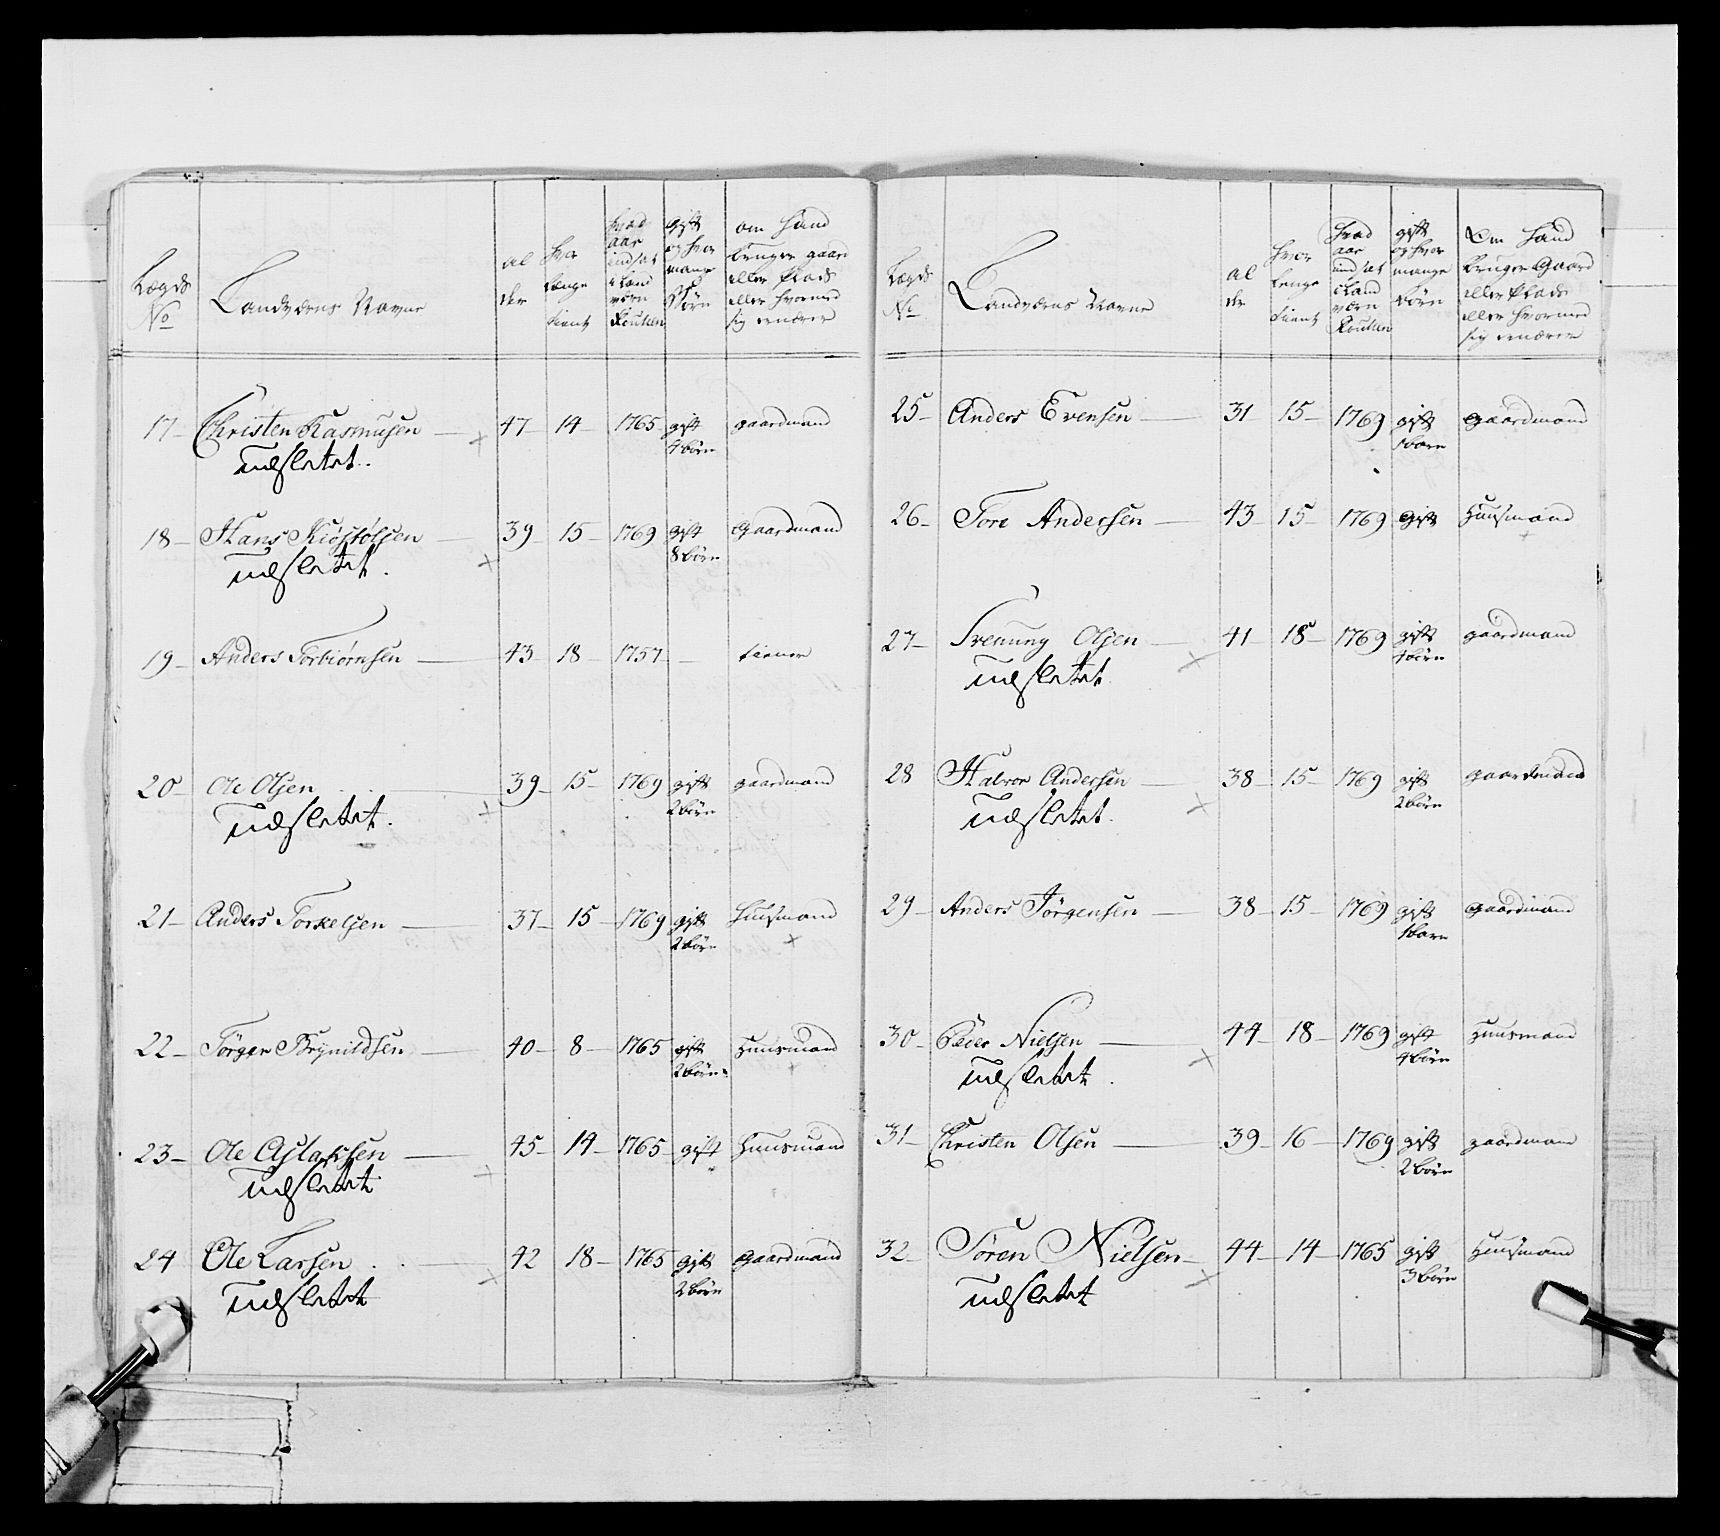 Lægds No
Landværns Navne
al der
hvor længe tient
hvad aar indsat i Land værn Roullen
gift og hvor mange Børn
om hand bruger gaard eller Plads eller hvormed sig ernærer
17 Christen Rasmusen 47 14 1765 gift 4 børn gaardmand
Udslettet.
18 Hans Kiøstølsen 39 15 1769 gift 8 børn Gaardmand
Udslettet.
19 Anders Torbiørnsen 43 18 1757 tiener
20 Ole Olsen 39 15 1769 gift 2 børn gaardmand
Udslettet.
21 Anders Torkelsen 37 15 1769 gift 2 børn Huusmand
22 Jörgen Brynildsen 40 8 1765 gift 2 børn Huusmand
23 Ole Aslaksen 45 14 1765 gift Huusmand
Udslettet
24 Ole Larsen 42 18 1765 gift 2 børn Gaardmand
Udslettet
Lægds No
Landværns Navne
al der
hvor lenge tient
hvad aar indsat i Land værn Roullen
gift og hvor mange Børn
Om hand bruger Gaard eller Plads eller hvormed sig ernærer
25 Anders Evensen 31 15 1769 gift 1 barn gaardmand
26 Tore Andersen 43 15 1769 Gift Huusmand
27 Svenung Olsen 41 18 1769 gift 4 børn gaardmand
Udslettet
28 Halvor Andersen 38 15 1769 gift 2 børn gaardmand
Udslettet.
29 Anders Jörgensen 38 15 1769 gift 1 barn gaardmand
30 Peder Nielsen 44 18 1769 gift 4 børn Huusmand
Udslettet.
31 Christen Olsen 39 16 1769 gift 2 børn gaardmand
32 Sören Nielsen 44 14 1765 gift 3 børn Huusmand
Udslettet